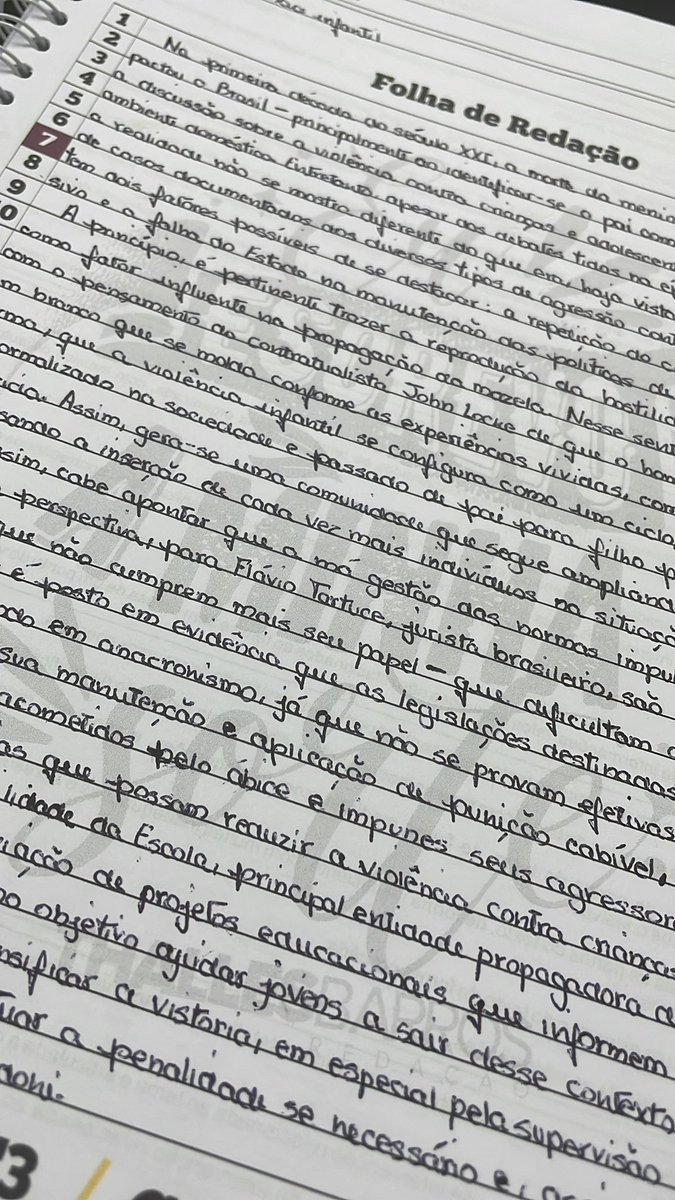 infantil
Folha de Redação
1
2 Na primeira década do século XXI, a morte da menin
3 pactou o Brasil - principalmente ao identificar-se o pai com
4 a discussão sobre a violência contra crianças e adolescen
5 ambiente doméstico. Entretanto, apesar dos debates tidos na
6 a realidade não se mostra diferente do que era, haja vista
7 de casos documentados dos diversos tipos de agressão cont
8 tem dois fatores possíveis de se destacar: a repetição do
9 sivo e a falha do Estado na manutenção das políticas de
0 A princípio, é pertinente trazer a reprodução da hostilid
como fator influente na propagação da mazela. Nesse sent
com o pensamento do contratualista John Locke de que o hom
m branco que se molda conforme as experiências vividas, com
rma, que a violência infantil se configura como um ciclo,
ormalizado na sociedade e passado de pai para filho p
ncia. Assim, gera-se uma comunidade que segue ampliand
sando a inserção de cada vez mais indivíduos na situaçã
sim, cabe apontar que a má gestão das normas impul
perspectiva, para Flávio Tartuce, jurista brasileiro, são
que não cumprem mais seu papel - que dificultam
é posto em evidência que as legislações destinadas
do em anacronismo, já que não se provam efetivas
sua manutenção e aplicação de punição cabível,
acometidos pelo óbice e impunes seus agressor
as que possam reduzir a violência contra crianças
lidade da Escola, principal entidade propagadora
iação de projetos educacionais que informem
o objetivo ajudar jovens a sair desse contexto
nsificar a vistoria, em especial pela supervisão
uar a penalidade se necessário e,
doni.
THALLES BARROS
REDAÇÃO